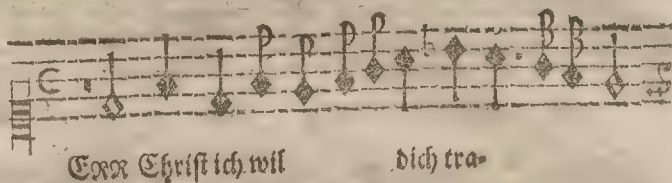 ERR Christ ich wil dich tra-